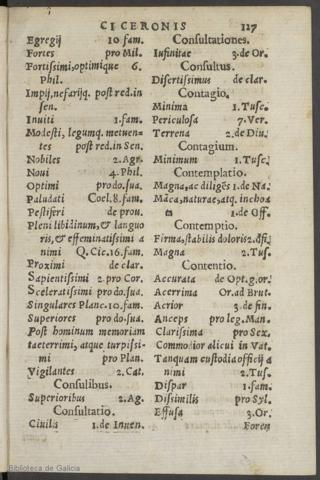 CICERONIS 127
Egregij 10.fam.
Fortes pro Mil.
Fortissimi,optimique 6.
Phil.
Impij,nefarijq. post red.in
sen.
Inuiti 1.fam.
Modesti, legumq. metuen-
tes post red.in Sen.
Nobiles 2.Agr.
Noui 4.Phil.
Optimi pro do.sua.
Paludati Coel.8.fam.
Pestiferi de prou.
Pleni libidinum,& languo
ris,& effeminatissimi a
nimi Q.Cic.16.fam.
Proximi de clar.
Sapientissimi 2.pro Cor.
Sceleratissimi pro do.sua.
Singulares Planc.10.fam.
Superiores pro do.sua.
Post hominum memoriam
taeterrimi, atque turpissi-
mi pro Plan.
Vigilantes 2.Cat.
Consulibus.
Superioribus 2.Ag.
Consultatio.
Ciuilis 1.de Inuen.
Consultationes.
Infinitae 3.de Or.
Consultus.
Disertissimus de clar.
Contagio.
Minima 1.Tusc.
Periculosa 7.Ver.
Terrena 2.de Diu.
Contagium.
Minimum 1.Tusc.
Contemplatio.
Magna,ac diligẽs 1.de Na.
Mãca,naturae,atq. inchoa
ta 1.de Off.
Contemptio.
Firma,stabilis doloris 2.offi.
Magna 2.Tus.
Contentio.
Accurata de Opt.g.or.
Acerrima Or.ad Brut.
Acrior 3.de fin.
Anceps pro leg.Man.
Clarissima pro Sex.
Commodior alicui in Vat.
Tanquam custodia officij a
nimi 2.Tus.
Dispar 1.fam.
Dissimilis pro Syl.
Effusa 3.Or.
Foren
Biblioteca de Galicia